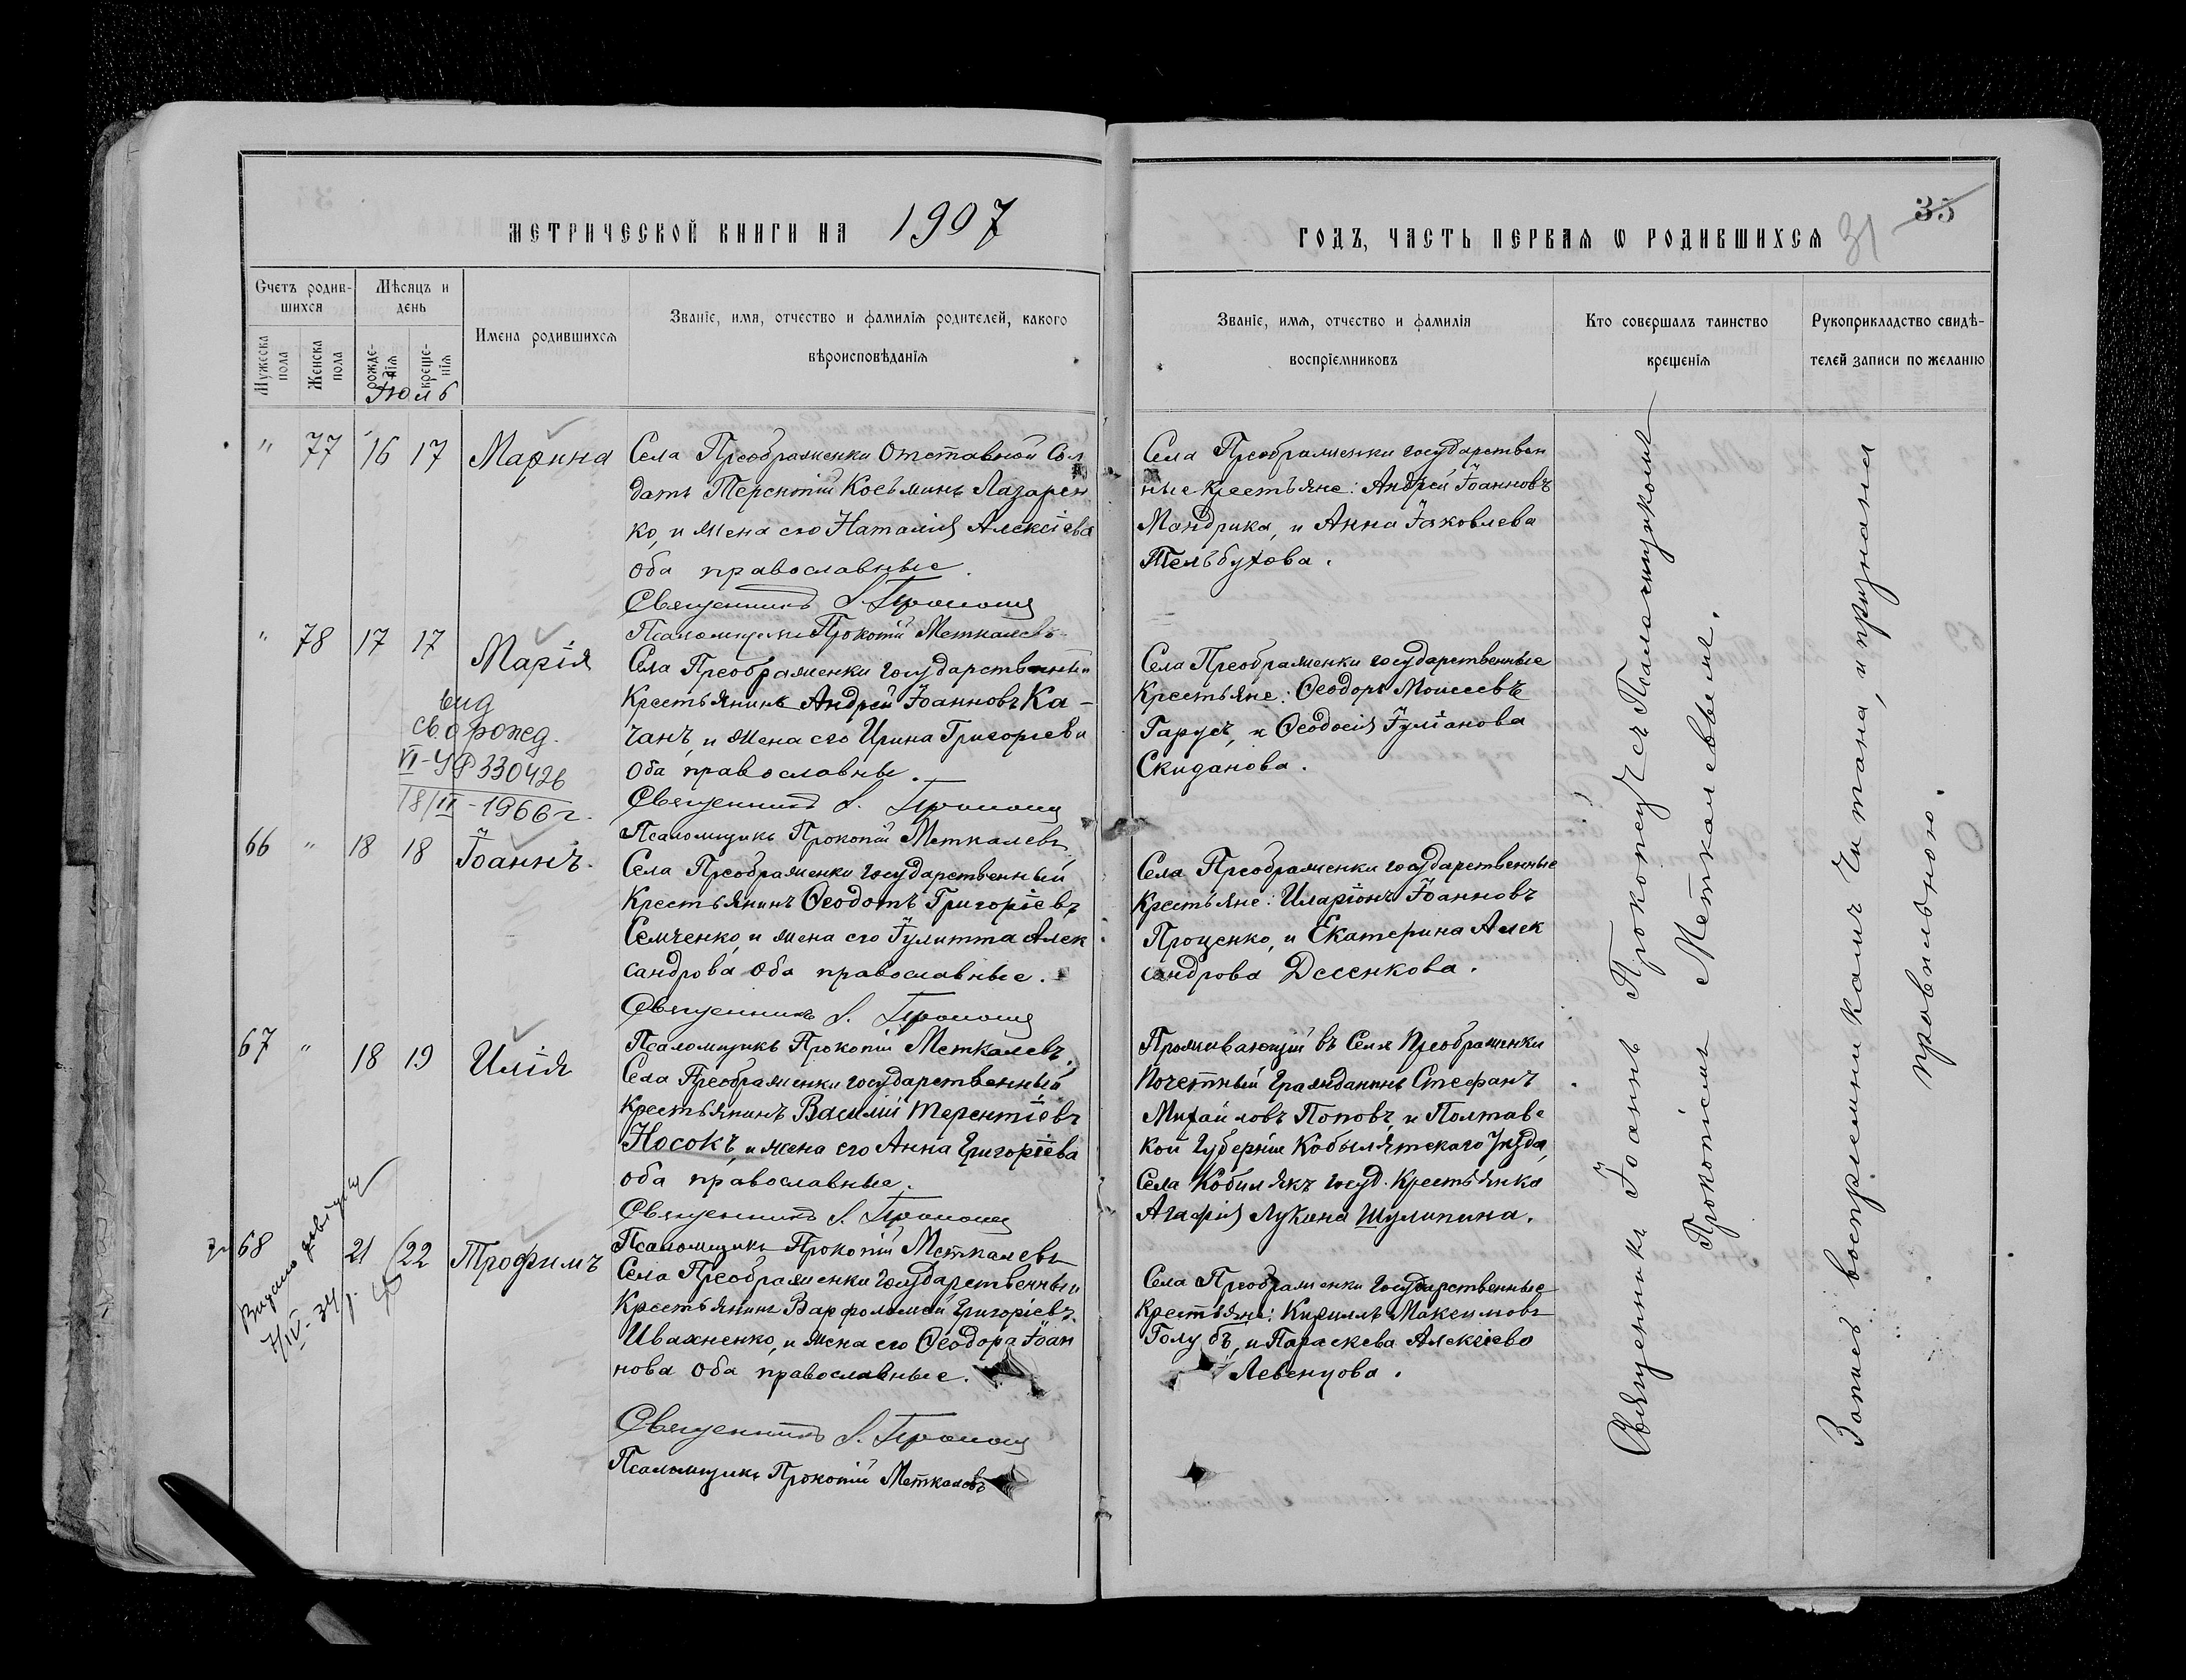 МЕТРИЧЕСКОЙ КНИГИ НА 1907
Счетъ родив-
шихся
Мѣсяцъ и
день
Мужеска
пола
Женска
пола
рожде-
нія
креще-
нія
Имена родившихся
Званіе, имя, отчество и фамилія родителей, какого
вѣроисповѣданія
Іюль
" 77 16 17 Марина
Села Преображенки Отставной Сол
датъ Терентій Косьминъ Лазарен
ко, и жена его Наталія Алексіева
оба православные.
Священникъ І.
Псаломщикъ Прокопій Меткалевъ
" 78 17 17 Марія
Села Преображенки государственный
Крестьянинъ Андрей Іоанновъ Ка-
чанъ, и жена его Ирина Григоріева
Оба православные.
Священникъ І.
вид
св о рожд.
VI-УР 330426
18/II-1966 г.
Псаломщикъ Прокопій Меткалевъ
66 " 18 18 Іоаннъ.
Села Преображенки государственный
Крестьянинъ Ѳеодотъ Григоріевъ
Семченко, и жена его Іулитта Алек
сандрова оба православные.
Священникъ І.
Псаломщикъ Прокопій Меткалевъ.
67 " 18 19 Илія
Села Преображенки государственный
Крестьянинъ Василій Терентіевъ
Носокъ, и жена его Анна Григоріева
оба православные.
Священникъ І.
Псаломщикъ Прокопій Меткалевъ
68 21 22 Трофимъ
Села Преображенки государственный
Крестьянинъ Варфоломей Григоріевъ
Ивахненко, и жена его Ѳеодора Іоан
нова оба православные.
Видано довідку
7/IV-34 р.
Священникъ І.
Псаломщикъ Прокопій Меткалевъ
ГОДЪ, ЧАСТЬ ПЕРВАЯ Ѡ РОДИВШИХСЯ 31 35
Званіе, имя, отчество и фамилія
воспріемниковъ
Кто совершалъ таинство
крещенія
Рукоприкладство свидѣ-
телей записи по желанію
Села Преображенки государствен
ные крестьяне: Андрей Іоанновъ
Мандрика, и Анна Іаковлева
Тельбухова.
Села Преображенки государственные
Крестьяне: Ѳеодоръ Моисеевъ
Гарусъ, и Ѳеодосія Іуліанова
Скиданова.
Села Преображенки государственные
Крестьяне: Иларіонъ Іоанновъ
Проценко, и Екатерина Алек
сандрова Десенкова.
Проживающій въ Селѣ Преображенки
Почетный Гражданинъ Стефанъ
Михайловъ Поповъ, и Полтавс
кой Губерніи Кобылятскаго Уѣзда,
Села Кобилякъ госуд. Крестьянка
Агафія Лукина Шулипина.
Села Преображенки Государственные
Крестьяне: Кириллъ Максимовъ
Голубъ, и Параскева Алексіева
Левенцова.
Священникъ Іоаннъ Прокопецъ съ Псаломщикомъ
Прокопіемъ Меткалевымъ.
Запись воспріемникамъ читана, и признана
правильною.